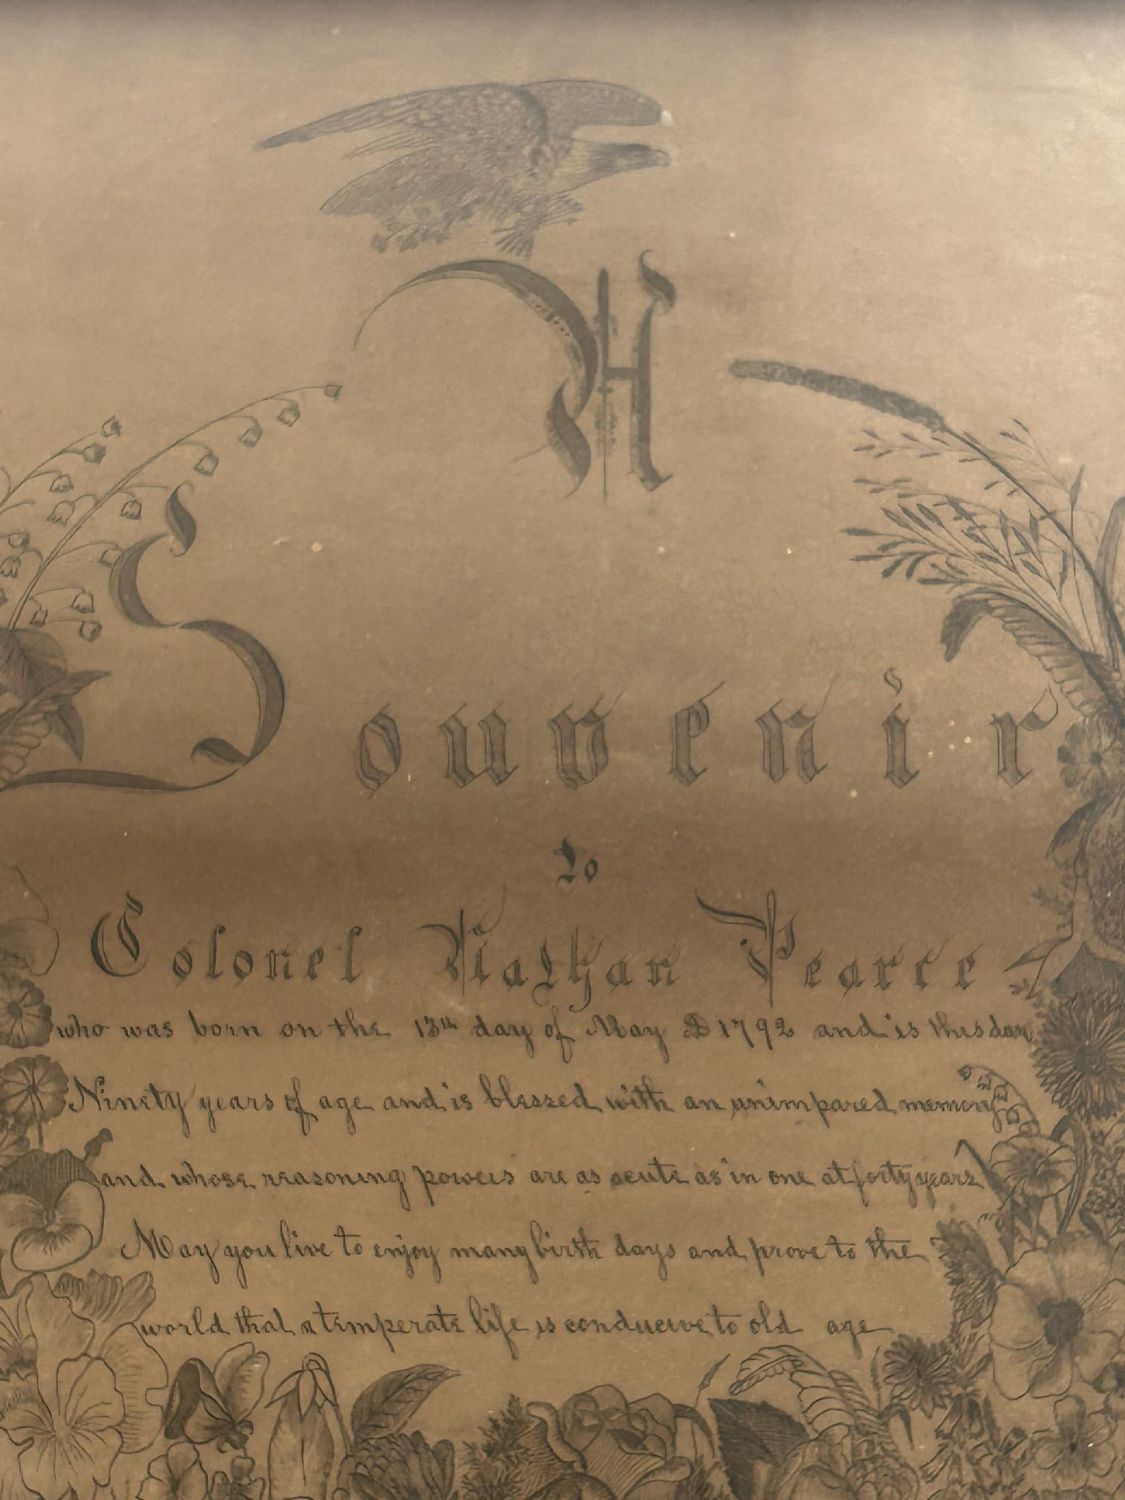 A
Souvenir
To
Colonel Nathan Pearce
who was born on the 13th day of May AD 1792 and is this day
Ninety years of age and is blessed with an unimpared memory
and whose reasoning powers are as acute as in one at forty years
May you live to enjoy many birth days and prove to the
world that a temperate life is conducive to old age